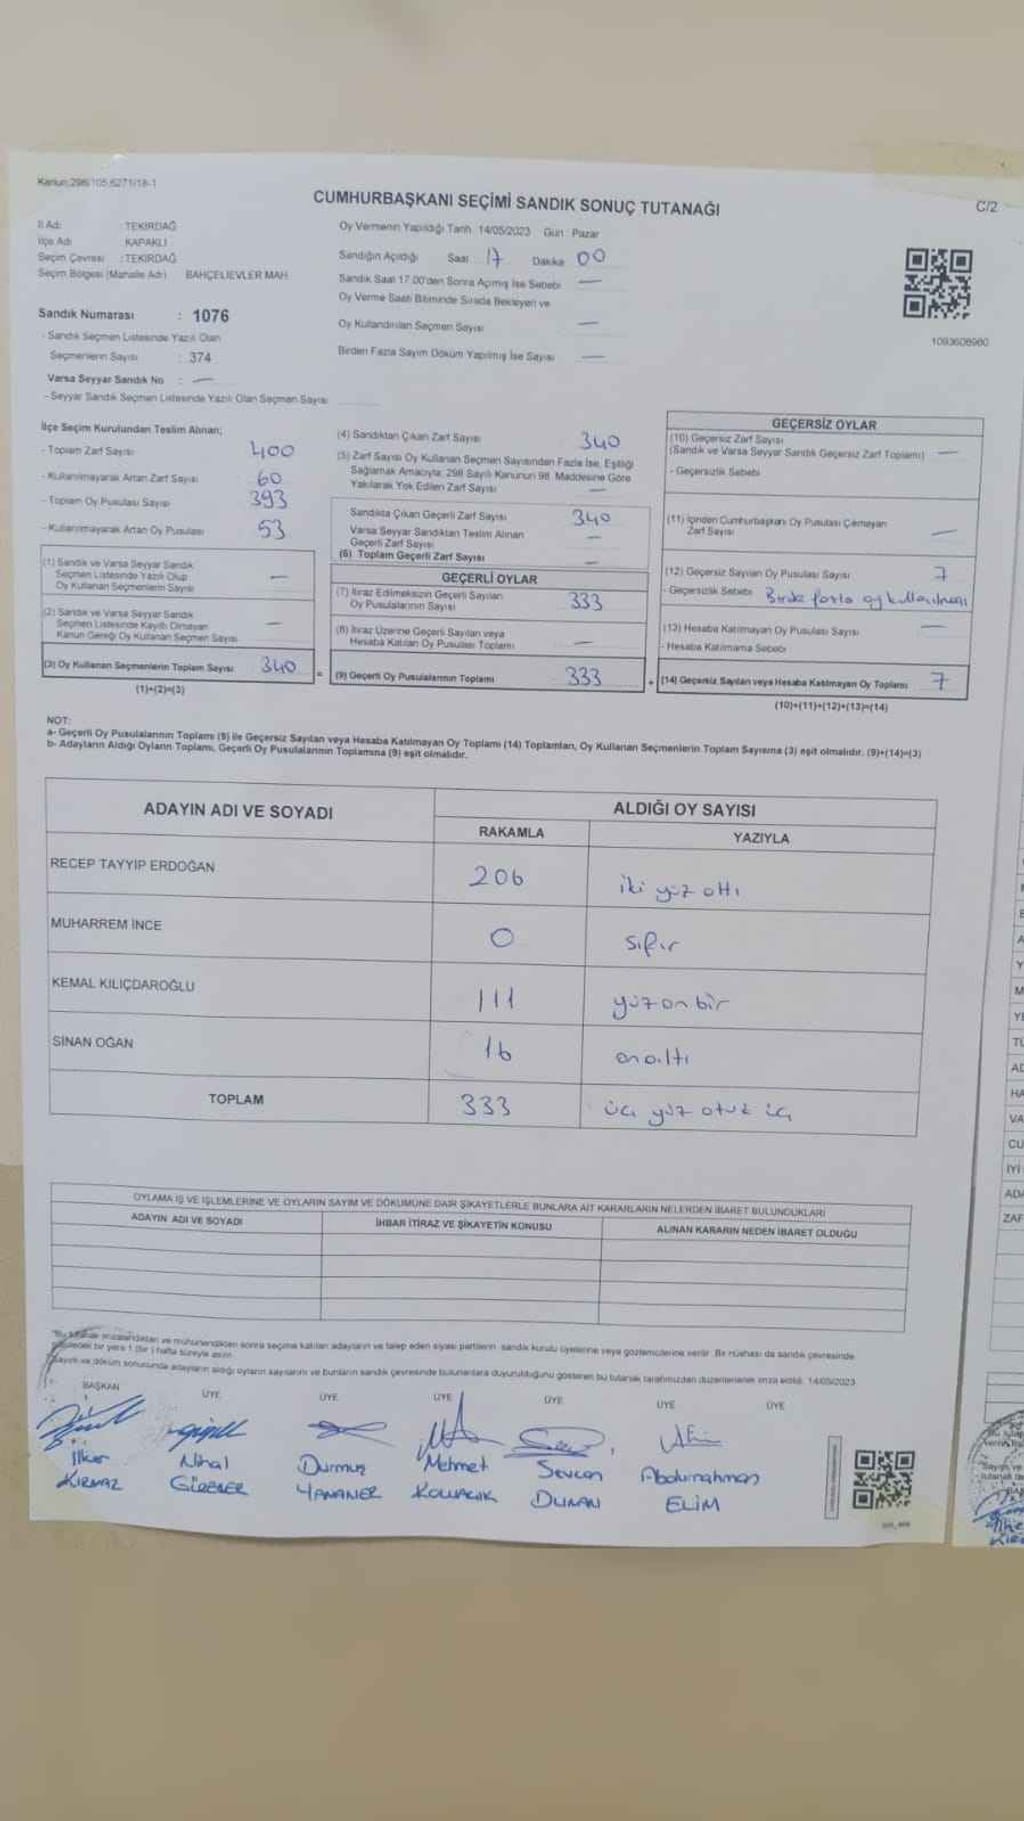 Kanun:298/105,6271/18-1
CUMHURBAŞKANI SEÇİMİ SANDIK SONUÇ TUTANAĞI
C/2
İl Adı : TEKİRDAĞ
İlçe Adı KAPAKLI
Seçim Çevresi : TEKİRDAĞ
Seçim Bölgesi (Mahalle Adı) BAHÇELİEVLER MAH.
Sandık Numarası : 1076
- Sandık Seçmen Listesinde Yazılı Olan
Seçmenlerin Sayısı : 374
Varsa Seyyar Sandık No : —
- Seyyar Sandık Seçmen Listesinde Yazılı Olan Seçmen Sayısı
Oy Vermenin Yapıldığı Tarih 14/05/2023 Gün : Pazar
Sandığın Açıldığı Saat 17 Dakika 00
Sandık Saat 17.00'den Sonra Açılmış İse Sebebi —
Oy Verme Saati Bitiminde Sırada Bekleyen ve
Oy Kullandırılan Seçmen Sayısı —
Birden Fazla Sayım Döküm Yapılmış İse Sayısı —
1093608960
İlçe Seçim Kurulundan Teslim Alınan;
- Toplam Zarf Sayısı 400
- Kullanılmayarak Artan Zarf Sayısı 60
- Toplam Oy Pusulası Sayısı 393
- Kullanılmayarak Artan Oy Pusulası 53
(1) Sandık ve Varsa Seyyar Sandık
Seçmen Listesinde Yazılı Olup
Oy Kullanan Seçmenlerin Sayısı —
(2) Sandık ve Varsa Seyyar Sandık
Seçmen Listesinde Kayıtlı Olmayan
Kanun Gereği Oy Kullanan Seçmen Sayısı —
(3) Oy Kullanan Seçmenlerin Toplam Sayısı 340
(1)+(2)=(3)
(4) Sandıktan Çıkan Zarf Sayısı 340
(5) Zarf Sayısı Oy Kullanan Seçmen Sayısından Fazla İse, Eşitliği
Sağlamak Amacıyla, 298 Sayılı Kanunun 98. Maddesine Göre
Yakılarak Yok Edilen Zarf Sayısı —
Sandıkta Çıkan Geçerli Zarf Sayısı 340
Varsa Seyyar Sandıktan Teslim Alınan
Geçerli Zarf Sayısı —
(6) Toplam Geçerli Zarf Sayısı —
GEÇERLİ OYLAR
(7) İtiraz Edilmeksizin Geçerli Sayılan
Oy Pusulalarının Sayısı 333
(8) İtiraz Üzerine Geçerli Sayılan veya
Hesaba Katılan Oy Pusulası Toplamı —
(9) Geçerli Oy Pusulalarının Toplamı 333
GEÇERSİZ OYLAR
(10) Geçersiz Zarf Sayısı
(Sandık ve Varsa Seyyar Sandık Geçersiz Zarf Toplamı) —
- Geçersizlik Sebebi
(11) İçinden Cumhurbaşkanı Oy Pusulası Çıkmayan
Zarf Sayısı —
(12) Geçersiz Sayılan Oy Pusulası Sayısı 7
- Geçersizlik Sebebi Birde fazla oy kullanılması
(13) Hesaba Katılmayan Oy Pusulası Sayısı —
- Hesaba Katılmama Sebebi
(14) Geçersiz Sayılan veya Hesaba Katılmayan Oy Toplamı 7
(10)+(11)+(12)+(13)=(14)
NOT:
a- Geçerli Oy Pusulalarının Toplamı (9) ile Geçersiz Sayılan veya Hesaba Katılmayan Oy Toplamı (14) Toplamları, Oy Kullanan Seçmenlerin Toplam Sayısına (3) eşit olmalıdır. (9)+(14)=(3)
b- Adayların Aldığı Oyların Toplamı, Geçerli Oy Pusulalarının Toplamına (9) eşit olmalıdır.
ADAYIN ADI VE SOYADI ALDIĞI OY SAYISI
RAKAMLA YAZIYLA
RECEP TAYYİP ERDOĞAN 206 iki yüz altı
MUHARREM İNCE 0 sıfır
KEMAL KILIÇDAROĞLU 111 yüz on bir
SİNAN OĞAN 16 on altı
TOPLAM 333 üç yüz otuz üç
OYLAMA İŞ VE İŞLEMLERİNE VE OYLARIN SAYIM VE DÖKÜMÜNE DAİR ŞİKAYETLERLE BUNLARA AİT KARARLARIN NELERDEN İBARET BULUNDUKLARI
ADAYIN ADI VE SOYADI İHBAR İTİRAZ VE ŞİKAYETİN KONUSU ALINAN KARARIN NEDEN İBARET OLDUĞU
imzalandıktan ve mühürlendikten sonra seçime katılan adayların ve talep eden siyasi partilerin sandık kurulu üyelerine veya gözlemcilerine verilir. Bir nüshası da sandık çevresinde
bir yere 1 (bir) hafta süreyle asılır.
Sayım ve döküm sonucunda adayların aldığı oyların sayılarını ve bunların sandık çevresinde bulunanlara duyurulduğunu gösteren bu tutanak tarafımızdan düzenlenerek imza edildi. 14/05/2023
BAŞKAN ÜYE ÜYE ÜYE ÜYE ÜYE ÜYE
İlker Nihal Durmuş Mehmet Sevcan Abdurrahman
KIRMAZ YANANER DUMAN ELİM